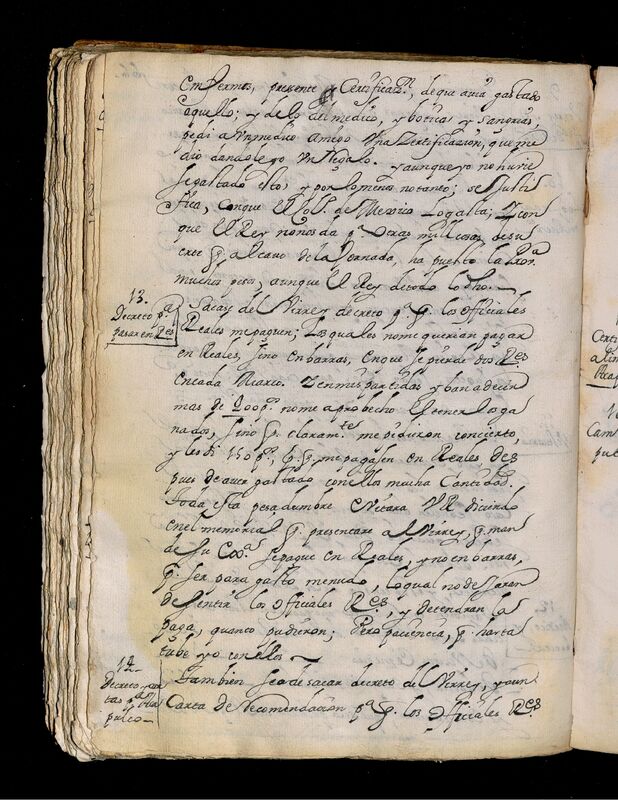 enfermos, presente Certificaz.ⁿ, de que avia gastado
aquello; y de lo del medico, y boticas y sangrias,
pedi a un medico amigo una Zertificazion, que me
dio dandole yo un Regalo. y aunque yo no huvie
se gastado esto, y por lo menos no tanto; se justi
fica, con que el Col.º de Mexico lo gasta; Y con
que el Rey no nos da p.ª otras mil cosas, de su
erte q̄. al cavo de la Jornada, ha puesto la Pro.ª
muchos pesos, aunque el Rey de todo lo dho.
13.
Decreto p.ª
pagar en R.es
Sacase del Virrey decreto p.ª q̄. los officiales
Reales me paguen; Los quales no me querian pagar
en Reales, sino en barras, en que se pierde dos R.es
en cada Marco. Y en mis partidas yban a decir
mas de 200 p.s no me aprobecho el tenerlos ga
nados, sino q̄. claram.te me pidieron concierto
y les di 150 p.s, p.q̄. me pagasen en Reales des
pues de aver gastado con ellos mucha Cantidad.
Toda esta pesadumbre evitara VR diciendo
en el memorial q̄. presentare al Virrey, q̄. man
de su Exx.ª se pague en Reales, y no en barras,
p.r ser para gasto menudo, lo qual no dejaran
de sentir los officiales R.es, y detendran la
paga, quanto pudieren; Pero paciencia, q̄. harta
tube yo con ellos
14.
Decreto, y car
tas p.ª Aca
pulco
Tambien se a de sacar decreto del Virrey, y aun
Carta de recomendacion p.ª q̄. los officiales R.es